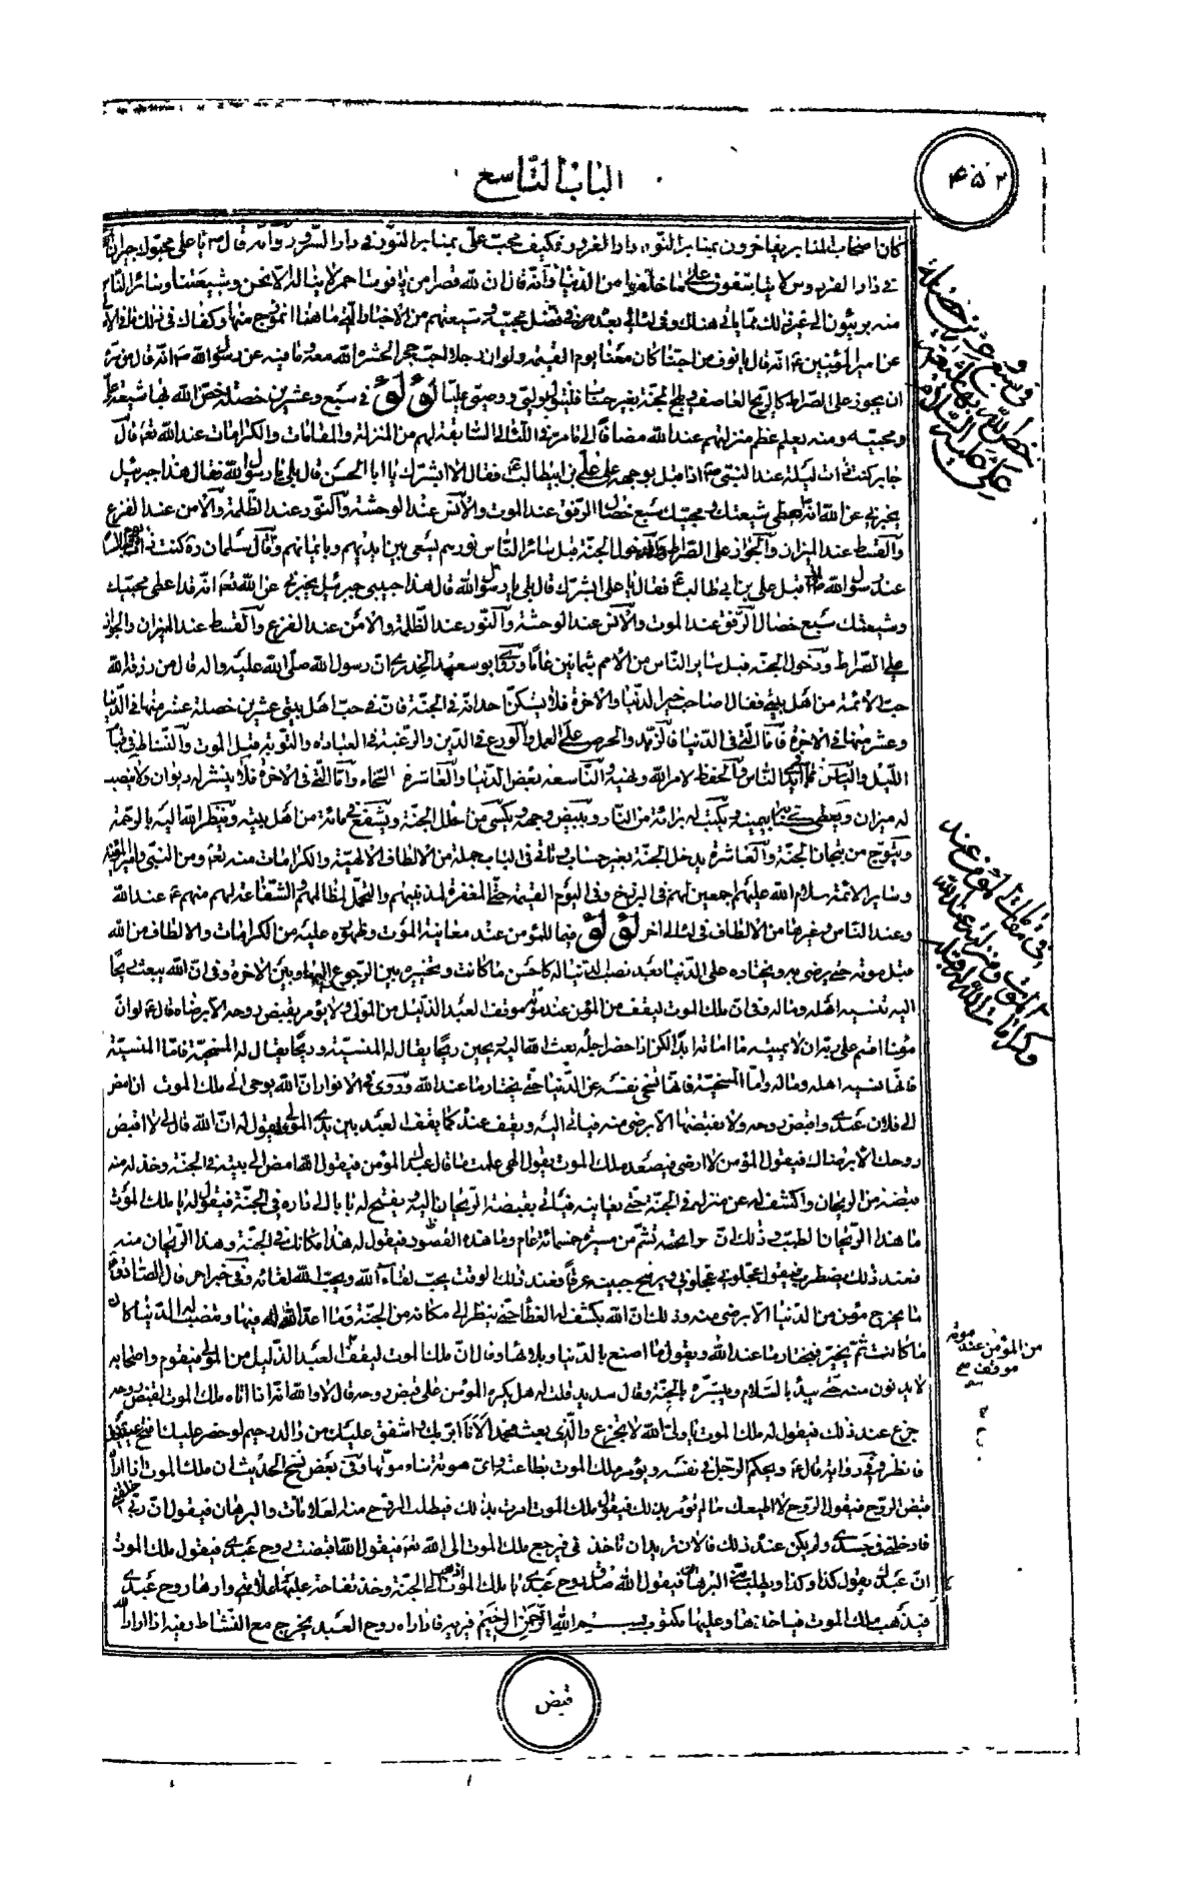 ۴۵۲
الباب التاسع
كان اصحاب المنابر يفاخرون بمنابر النور في دار الفردوس فكيف محب علي بمنابر النور في دار السرور وانه قال ص يا علي محبوك جيران الله
في دار الفردوس لا يتاسفون على ما خلفوا من الدنيا وانه قال ان لله قصرا من ياقوتة احمر لا ينالها الا نحن وشيعتنا وسائر الناس
منه بريئون الى غير ذلك مما ياتي هناك وفي لئالي بعده في فضل محبيه وشيعتهم من الاخبار التي ما هذا انموذج منها وكفاك في ذلك ما في
عن امير المؤمنين ع انه قال يا نوف من احبنا كان معنا يوم القيمة ولو ان رجلا احب حجر الحشره الله معه وما فيه عن رسول الله ص انه قال من سره
ان يجوز على الصراط كالريح العاصف ويلج الجنة بغير حساب فليتول وليي ووصيي عليا لؤلؤ في سبع وعشرين خصلة خص الله بها شيعة علي
ومحبيه ومنه يعلم عظم منزلتهم عند الله مضافا الى ما مر في اللئالي السابقة لهم من المنزلة والمقامات والكرامات عند الله تعم قال
جابر كنت ذات ليلة عند النبي ص اذ اقبل بوجهه على علي بن ابيطالب ع فقال الا ابشرك يا ابا الحسن قال بلى يا رسول الله فقال هذا جبرئيل
يخبرني عن الله انه يعطي شيعتك ومحبيك سبع خصال الرفق عند الموت والانس عند الوحشة والنور عند الظلمة والامن عند الفزع
والقسط عند الميزان والجواز على الصراط ودخول الجنة قبل سائر الناس نورهم يسعى بين ايديهم وبايمانهم وقال سلمان ره كنت
عند رسول الله اذ اقبل علي بن ابي طالب ع فقال يا علي الا ابشرك قال بلى يا رسول الله قال هذا حبيبي جبرئيل يخبرني عن الله تعم انه قد اعطى محبيك
وشيعتك سبع خصال الرفق عند الموت والانس عند الوحشة والنور عند الظلمة والامن عند الفزع والقسط عند الميزان والجواز
على الصراط ودخول الجنة قبل سائر الناس من الامم بثمانين عاما وروى ابو سعيد الخدري ان رسول الله صلى الله عليه واله قال من رزقه الله
حب الائمة من اهل بيتي فقد اصاب خير الدنيا والاخرة فلا يشكن احد انه في الجنة فان في حب اهل بيتي عشرين خصلة عشر منها في الدنيا
وعشر منها في الاخرة فاما التي في الدنيا فالزهد والحرص على العمل والورع في الدين والرغبة في العبادة والتوبة قبل الموت والنشاط في قيام
الليل والياس مما في ايدي الناس والحفظ لامر الله ونهيه والتاسعة بغض الدنيا والعاشرة السخاء واما التي في الاخرة فلا ينشر له ديوان ولا ينصب
له ميزان ويعطى كتابه بيمينه ويكتب له برائة من النار ويبيض وجهه ويكسى من حلل الجنة ويشفع في مائة من اهل بيته وينظر الله اليه بالرحمة
ويتوج من تيجان الجنة والعاشرة يدخل الجنة بغير حساب وياتي في الباب جملة من الالطاف الالهية والكرامات منه تعم ومن النبي وامير المؤمنين
وسائر الائمة سلام الله عليهم اجمعين لهم في البرزخ وفي اليوم القيمة حتى المغفرة لمذنبيهم والتحمل لمظالمهم والشفاعة لهم منهم ع عند الله
وعند الناس وغيرها من الالطاف في لئالي اخر لؤلؤ فيما للمؤمن عند معاينة الموت وظهوره عليه من الكرامات والالطاف من الله
قبل موته حتى يرضى به ويختاره على الدنيا بعد نصب الدنيا له كاحسن ما كانت وتخييره بين الرجوع اليها وبين الاخرة وفي ان الله يبعث ريحا
اليه تنسيه اهله وماله وفي ان ملك الموت ليقف من المؤمن عند موته موقف العبد الذليل من المولى ولا يؤمر بقبض روحه الا برضاه قال ع لو ان
مؤمنا اقسم على ربه ان لا يميته ما اماته ابدا لكن اذا حضر اجله بعث الله اليه بريحين ريحا يقال له المنسية وريحا يقال له المسخية فاما المنسية
فانها تنسيه اهله وماله واما المسخية فانها تسخي نفسه عن الدنيا حتى يختار ما عند الله وروى في الانوار ان الله يوحي الى ملك الموت ان امض
الى فلان عبدي واقبض روحه ولا تقبضها الا برضى منه فياتي اليه ويقف عنده كما يقف العبد بين يدي المولى فيقول له ان الله قال لي لا اقبض
روحك الا برضاك فيقول المؤمن لا ارضى فيصعد ملك الموت يقول الهي علمت ما قال عبدك المؤمن فيقول الله امض الى بيته في الجنة وخذ له منه
قبضة من الريحان واكشف له عن منزله في الجنة حتى يعاينه فياتي بقبضة الريحان اليه ويفتح له بابا الى داره في الجنة فيقول له يا ملك الموت
ما هذا الريحان الطيب وذلك ان رائحته تشم من مسيرة خمسمائة عام وما هذه القصور فيقول له هذا مكانك في الجنة وهذا الريحان منه
فعند ذلك يضطرب ويقول عجلوني عجلوني ويرشح جبينه عرقا فعند ذلك الوقت يحب لقاء الله ويحب الله لقائه وفي خبر اخر قال الصادق ع
ما يخرج مؤمن من الدنيا الا برضى منه وذلك ان الله يكشف له الغطا حتى ينظر الى مكانه من الجنة وما اعد الله له فيها وتنصب له الدنيا كاحسن
ما كانت ثم يخير فيختار ما عند الله ويقول ما اصنع بالدنيا وبلائها وقال ان ملك الموت ليقف العبد الذليل من المولى فيقوم واصحابه
لا يدنون منه حتى يبدء بالسلام ويبشره بالجنة وقال سدير قلت له هل يكره المؤمن على قبض روحه قال لا والله انه اذا اتاه ملك الموت لقبض روحه
جزع عند ذلك فيقول له ملك الموت يا ولي الله لا تجزع والذي بعث محمدا لانا ابر بك واشفق عليك من والد رحيم لو حضر عليك افتح عينيك
فانظر وفي رواية قال ع ويحكم الرجل في نفسه ويؤمر ملك الموت بطاعته وفي بعض نسخ الحديث ان ملك الموت اذا اراد
قبض الروح فيقول الروح لا اطيعك ما لم تؤمر بذلك فيقول ملك الموت امرت بذلك فيطلب الروح منه العلامات والبرهان فيقول ان ربي خلقني
فادخلني في جسدي ولم يكن عند ذلك فالان تريد ان تاخذني فيرجع ملك الموت الى الله تعم فيقول الله اقبضت روح عبدي فيقول ملك الموت
ان عبدك يقول كذا وكذا ويطلب مني البرهان فيقول الله صدق روح عبدي يا ملك الموت الى الجنة وخذ تفاحة عليها علامتي وارها روح عبدي
فيذهب ملك الموت فياخذها وعليها مكتوب بسم الله الرحمن الرحيم فيريه فاذا راه روح العبد يخرج مع النشاط وفيه اذا اراد الله
قبض
في سبع وعشرين خصلة
خص الله بها شيعة
علي عليه السلام
في مقامات المؤمن عند
الموت ومنزلته عند الله
وكرامات الله له قبله
من المؤمن عند موته
موقف